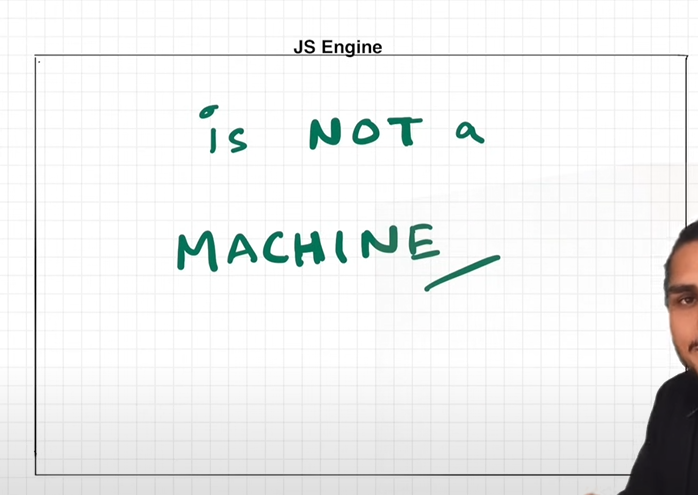 JS Engine
is NOT a
MACHINE